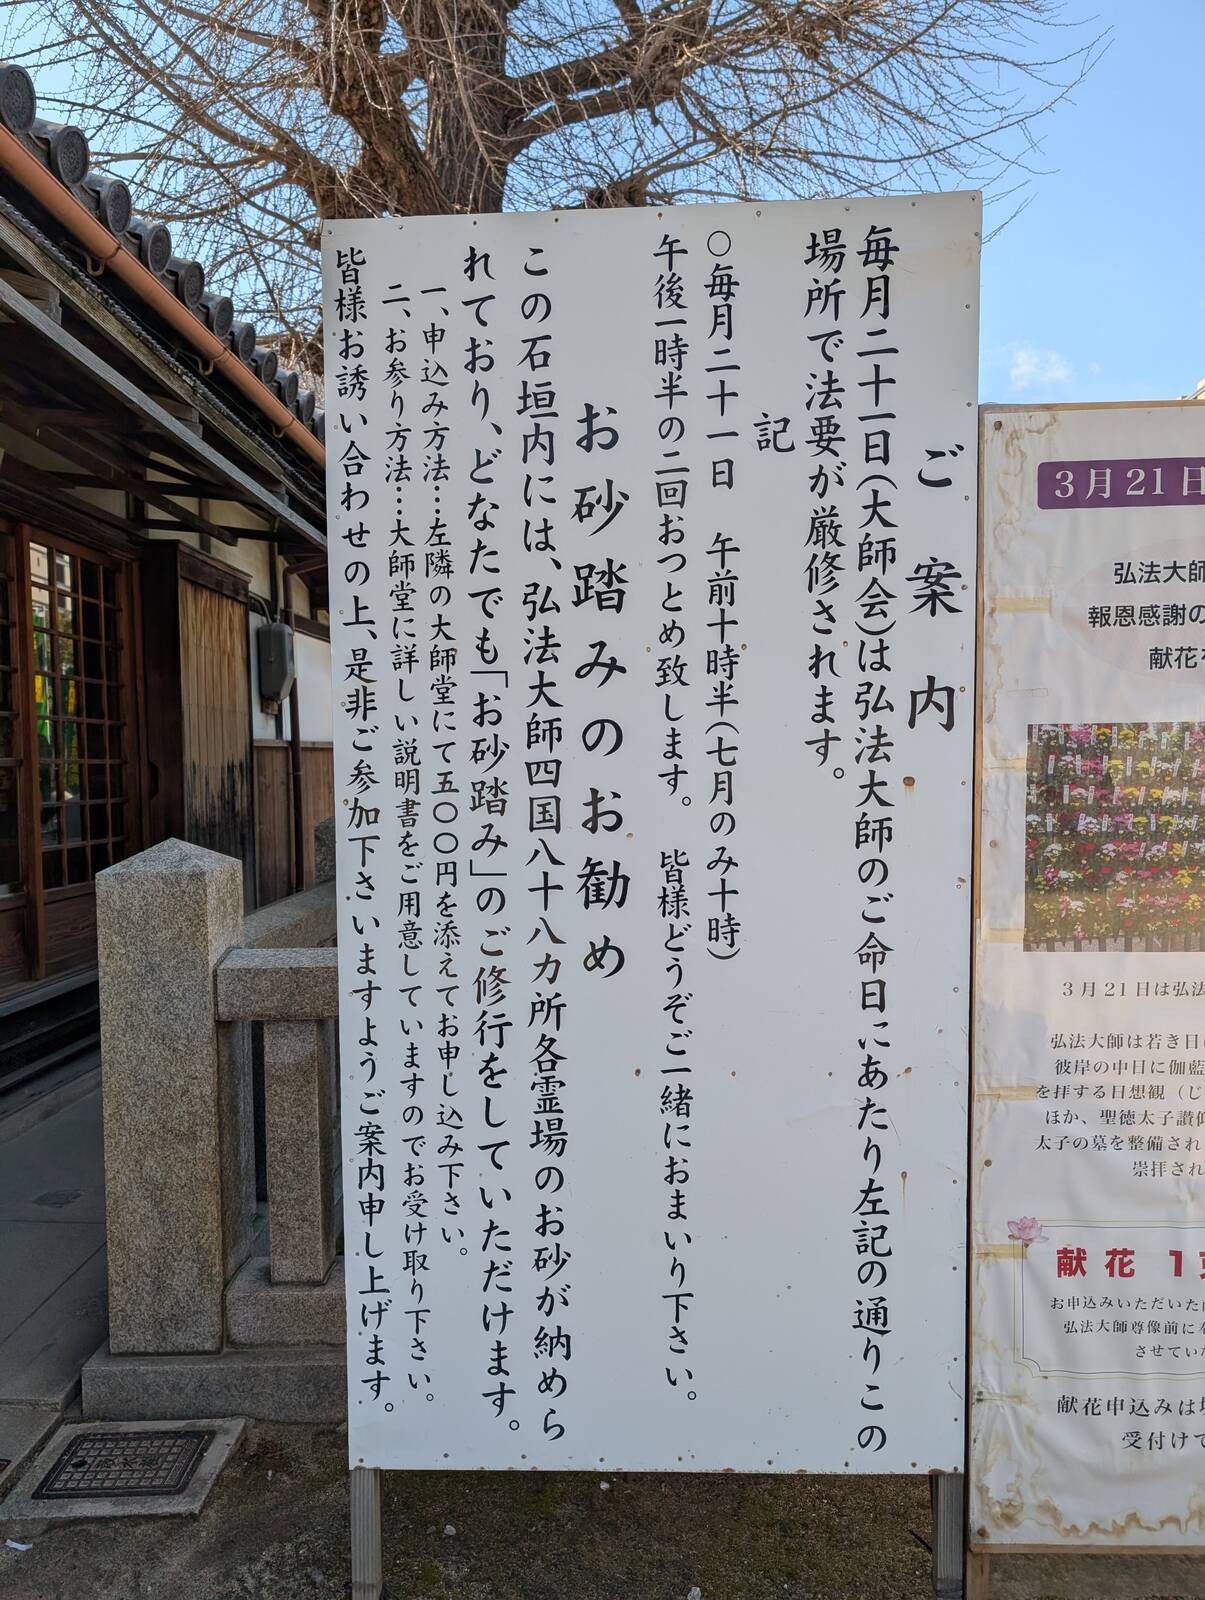 ご案内
毎月二十一日(大師会)は弘法大師のご命日にあたり左記の通りこの
場所で法要が厳修されます。
記
○毎月二十一日 午前十時半(七月のみ十時)
午後一時半の二回おつとめ致します。 皆様どうぞご一緒におまいり下さい。
お砂踏みのお勧め
この石垣内には、弘法大師四国八十八カ所各霊場のお砂が納めら
れており、どなたでも「お砂踏み」のご修行をしていただけます。
一、申込み方法…左隣の大師堂にて五〇〇円を添えてお申し込み下さい。
二、お参り方法…大師堂に詳しい説明書をご用意していますのでお受け取り下さい。
皆様お誘い合わせの上、是非ご参加下さいますようご案内申し上げます。
3月21日
弘法大師
報恩感謝の
献花
3月21日は弘法
弘法大師は若き日
彼岸の中日に伽藍
を拝する日想観(じ
ほか、聖徳太子讃仰
太子の墓を整備され
崇拝され
献花 1
お申込みいただいた
弘法大師尊像前に
させてい
献花申込みは
受付けて